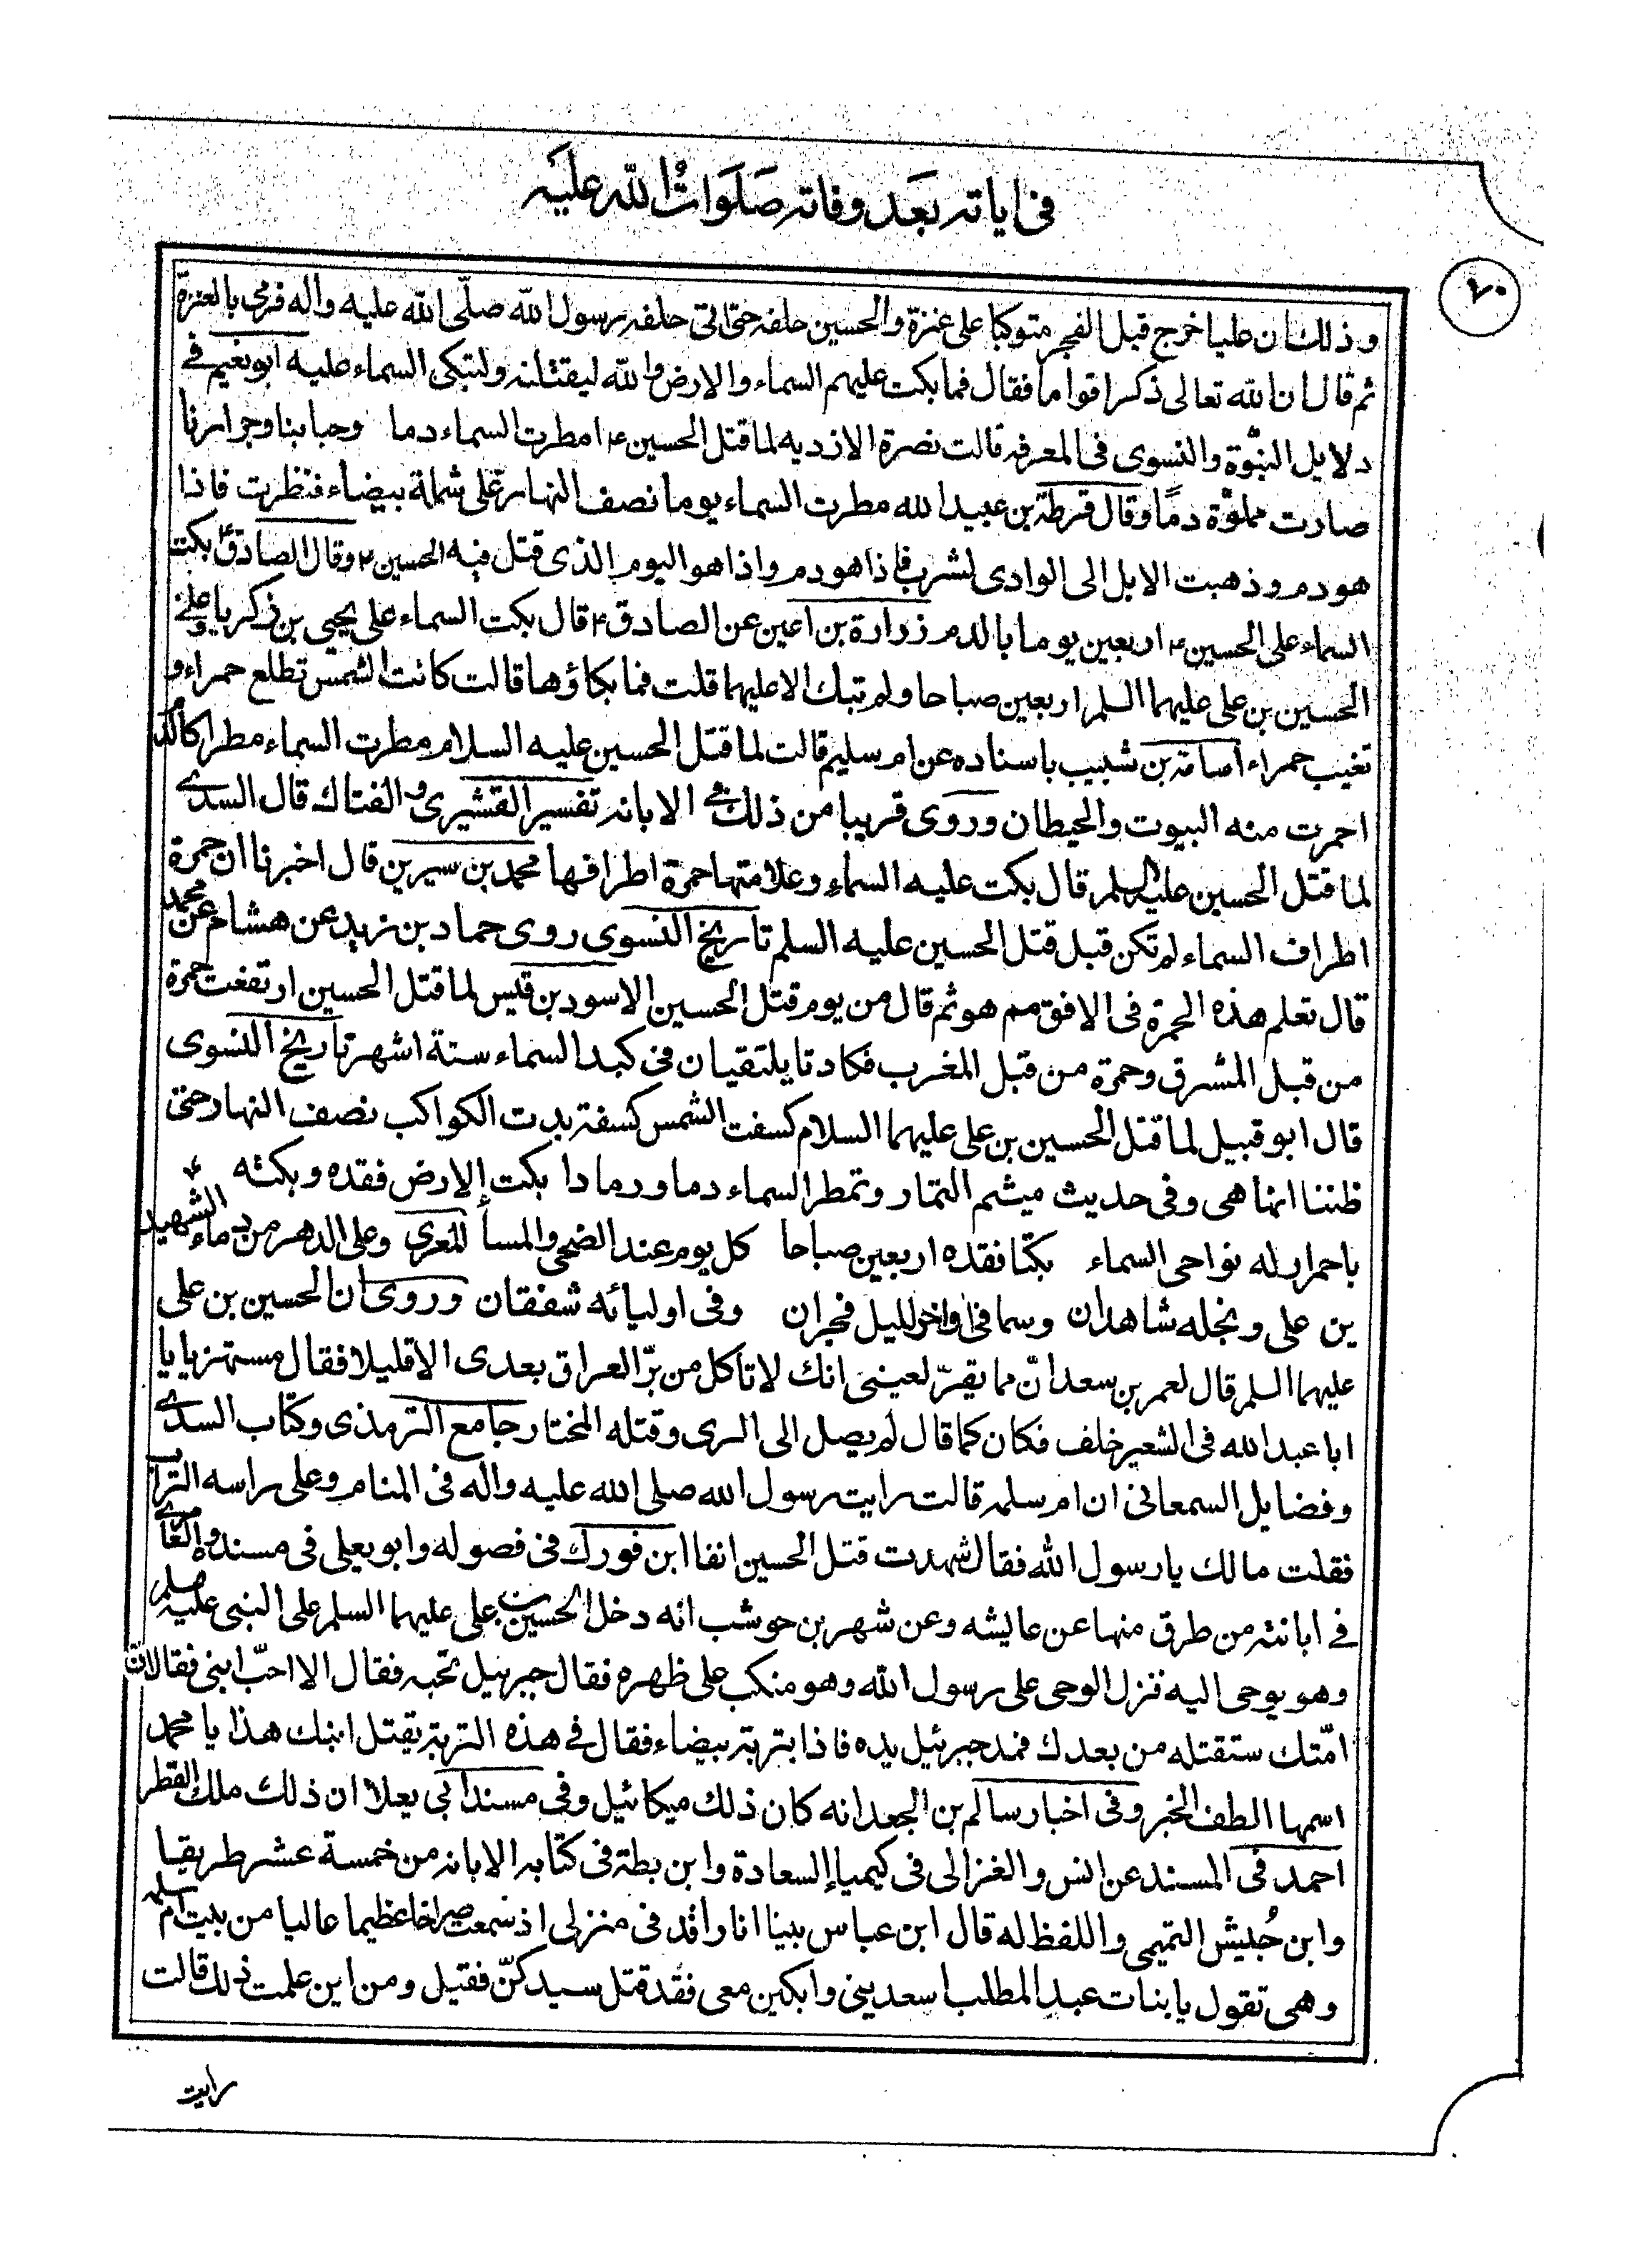 فى اياته بَعَد وفاته صَلَوَاتُ اللّه عليَه
٧٠
وذلك ان عليا خرج قبل الفجر متوكيا على عنزة والحسين خلفه حتى اتى حلقة رسول اللّه صلّى اللّه عليه واله فرمى بالعنزة
ثم قال ان اللّه تعالى ذكر اقواما فقال فما بكت عليهم السماء والارض واللّه ليقتلنه ولتبكى السماء عليه ابو نعيم فے
دلايل النبوّة والنسوى فى المعرفة قالت نصرة الازديه لما قتل الحسين ع امطرت السماء دما وحبابنا وجرارنا
صارت مملوّة دمًا وقال قرطة بن عبيد الله مطرت السماء يوما نصف النهار على شملة بيضاء فنظرت فاذا
هو دم وذهبت الابل الى الوادى لشرب فاذا هو دم واذا هو اليوم الذى قتل فيه الحسين ع وقال الصادق ع بكت
السماء على الحسين ع اربعين يوما بالدم زرارة بن اعين عن الصادق ع قال بكت السماء على يحيى بن زكريا وعلى
الحسين بن على عليهما السلم اربعين صباحا ولم تبك الا عليهما قلت فما بكاؤها قالت كانت الشمس تطلع حمراء و
تغيب حمراء اسامة بن شبيب باسناده عن ام سليم قالت لما قتل الحسين عليه السلام مطرت السماء مطرا كالدم
احمرت منه البيوت والحيطان وروى قريبا من ذلك فے الابانة تفسير القشيرى و الفتاك قال السدى
لما قتل الحسين عليه السلم قال بكت عليه السماء وعلامتها حمرة اطرافها محمد بن سيرين قال اخبرنا ان حمرة
اطراف السماء لم تكن قبل قتل الحسين عليه السلم تاريخ النسوى روى حماد بن زيد عن هشام عن محمد
قال تعلم هذه الحمرة فى الافق مم هو ثم قال من يوم قتل الحسين الاسود بن قيس لما قتل الحسين ارتفعت حمرة
من قبل المشرق وحمرة من قبل المغرب فكادتا يلتقيان فى كبد السماء ستة اشهر تاريخ النسوى
قال ابو قبيل لما قتل الحسين بن على عليهما السلام كسفت الشمس كسفة بدت الكواكب نصف النهار حتى
ظننا انها هى وفى حديث ميثم التمار وتمطر السماء دما ورمادا بكت الارض فقده وبكته
باحمرار له نواحى السماء بكتا فقده اربعين صباحا كل يوم عند الضحى والمسا المعرى وعلى الدهر من دماء الشهيد
ين على ونجله شاهدان وسما فى اواخر الليل فجران وفى اوليائه شفقان وروى ان الحسين بن على
عليهما السلم قال لعمر بن سعد انّ مما يقرّ لعينى انك لا تاكل من برّ العراق بعدى الا قليلا فقال مستهزيا يا
ابا عبد الله فى الشعير خلف فكان كما قال لم يصل الى الرى وقتله المختار جامع الترمذى وكتاب السدى
وفضايل السمعانى ان ام سلمه قالت رايت رسول الله صلى الله عليه واله فى المنام وعلى راسه التراب
فقلت مالك يا رسول اللّه فقال شهدت قتل الحسين انفا ابن فورك فى فصوله وابو يعلى فى مسنده والعامرى
فے ابانته من طرق منها عن عايشه وعن شهر بن حوشب انه دخل الحسين بن على عليهما السلم على النبى عليه السلم
وهو يوحى اليه فنزل الوحى على رسول اللّه وهو منكب على ظهره فقال جبرئيل تحبه فقال الا احبّ ابنى فقال انّ
امّتك ستقتله من بعدك فمد جبرئيل يده فاذا بتربة بيضاء فقال فے هذه التربة يقتل ابنك هذا يا محمد
اسمها الطف الخبر وفى اخبار سالم بن الجعد انه كان ذلك ميكائيل وفى مسند ابى يعلا ان ذلك ملك القطر
احمد فى المسند عن انس والغزالى فى كيمياء السعادة وابن بطة فى كتابه الابانة من خمسة عشر طريقا
وابن حُبيش التميمى واللفظ له قال ابن عباس بينا انا راقد فى منزلى اذ سمعت صراخا عظيما عاليا من بيت ام سلمه
وهى تقول يا بنات عبد المطلب اسعديننى وابكين معى فقد قتل سيدكنّ فقيل ومن اين علمت ذلك قالت
رايت